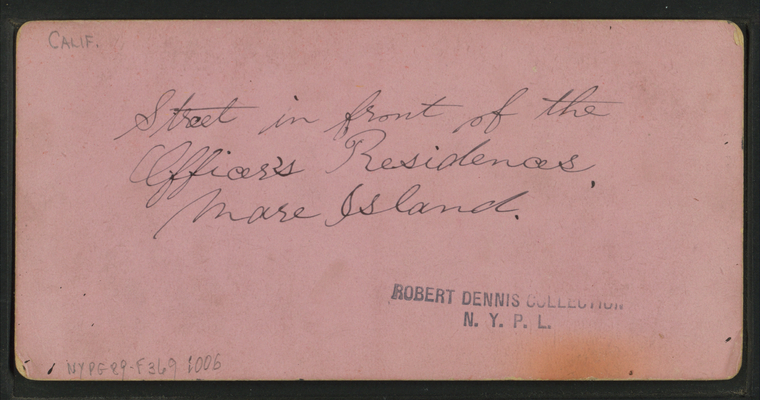 CALIF.
Street in front of the
Officer's Residences,
Mare Island.
ROBERT DENNIS COLLECTION
N. Y. P. L.
NYPG-89-F369 1006